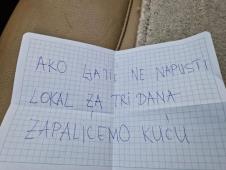 AKO NE NAPUSTI
LOKAL ZA TRI DANA
ZAPALIĆEMO KUĆU